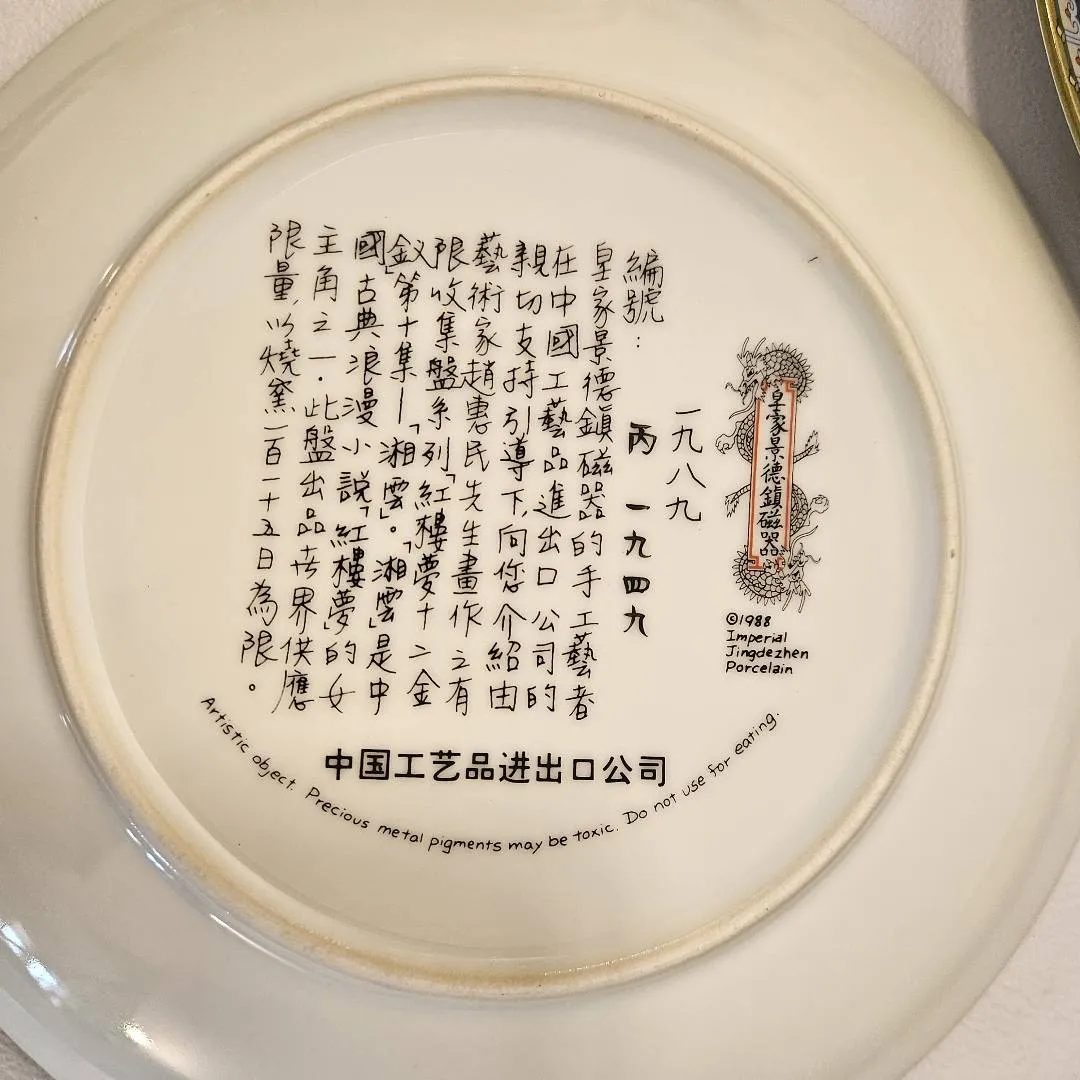 皇家景德鎮磁器
©1988
Imperial
Jingdezhen
Porcelain
一九八九
編號：
丙 一九四九
皇家景德鎮磁器的手工藝者
在中國工藝品進出口公司的
親切支持引導下，向您介紹由
藝術家趙惠民先生畫作之有
限收集盤系列「紅樓夢十二金
釵」第十集—「湘雲」。「湘雲」是中
國古典浪漫小説「紅樓夢」的女
主角之一．此盤出品世界供應
限量，以燒窯一百一十五日為限。
中国工艺品进出口公司
Artistic object. Precious metal pigments may be toxic. Do not use for eating.